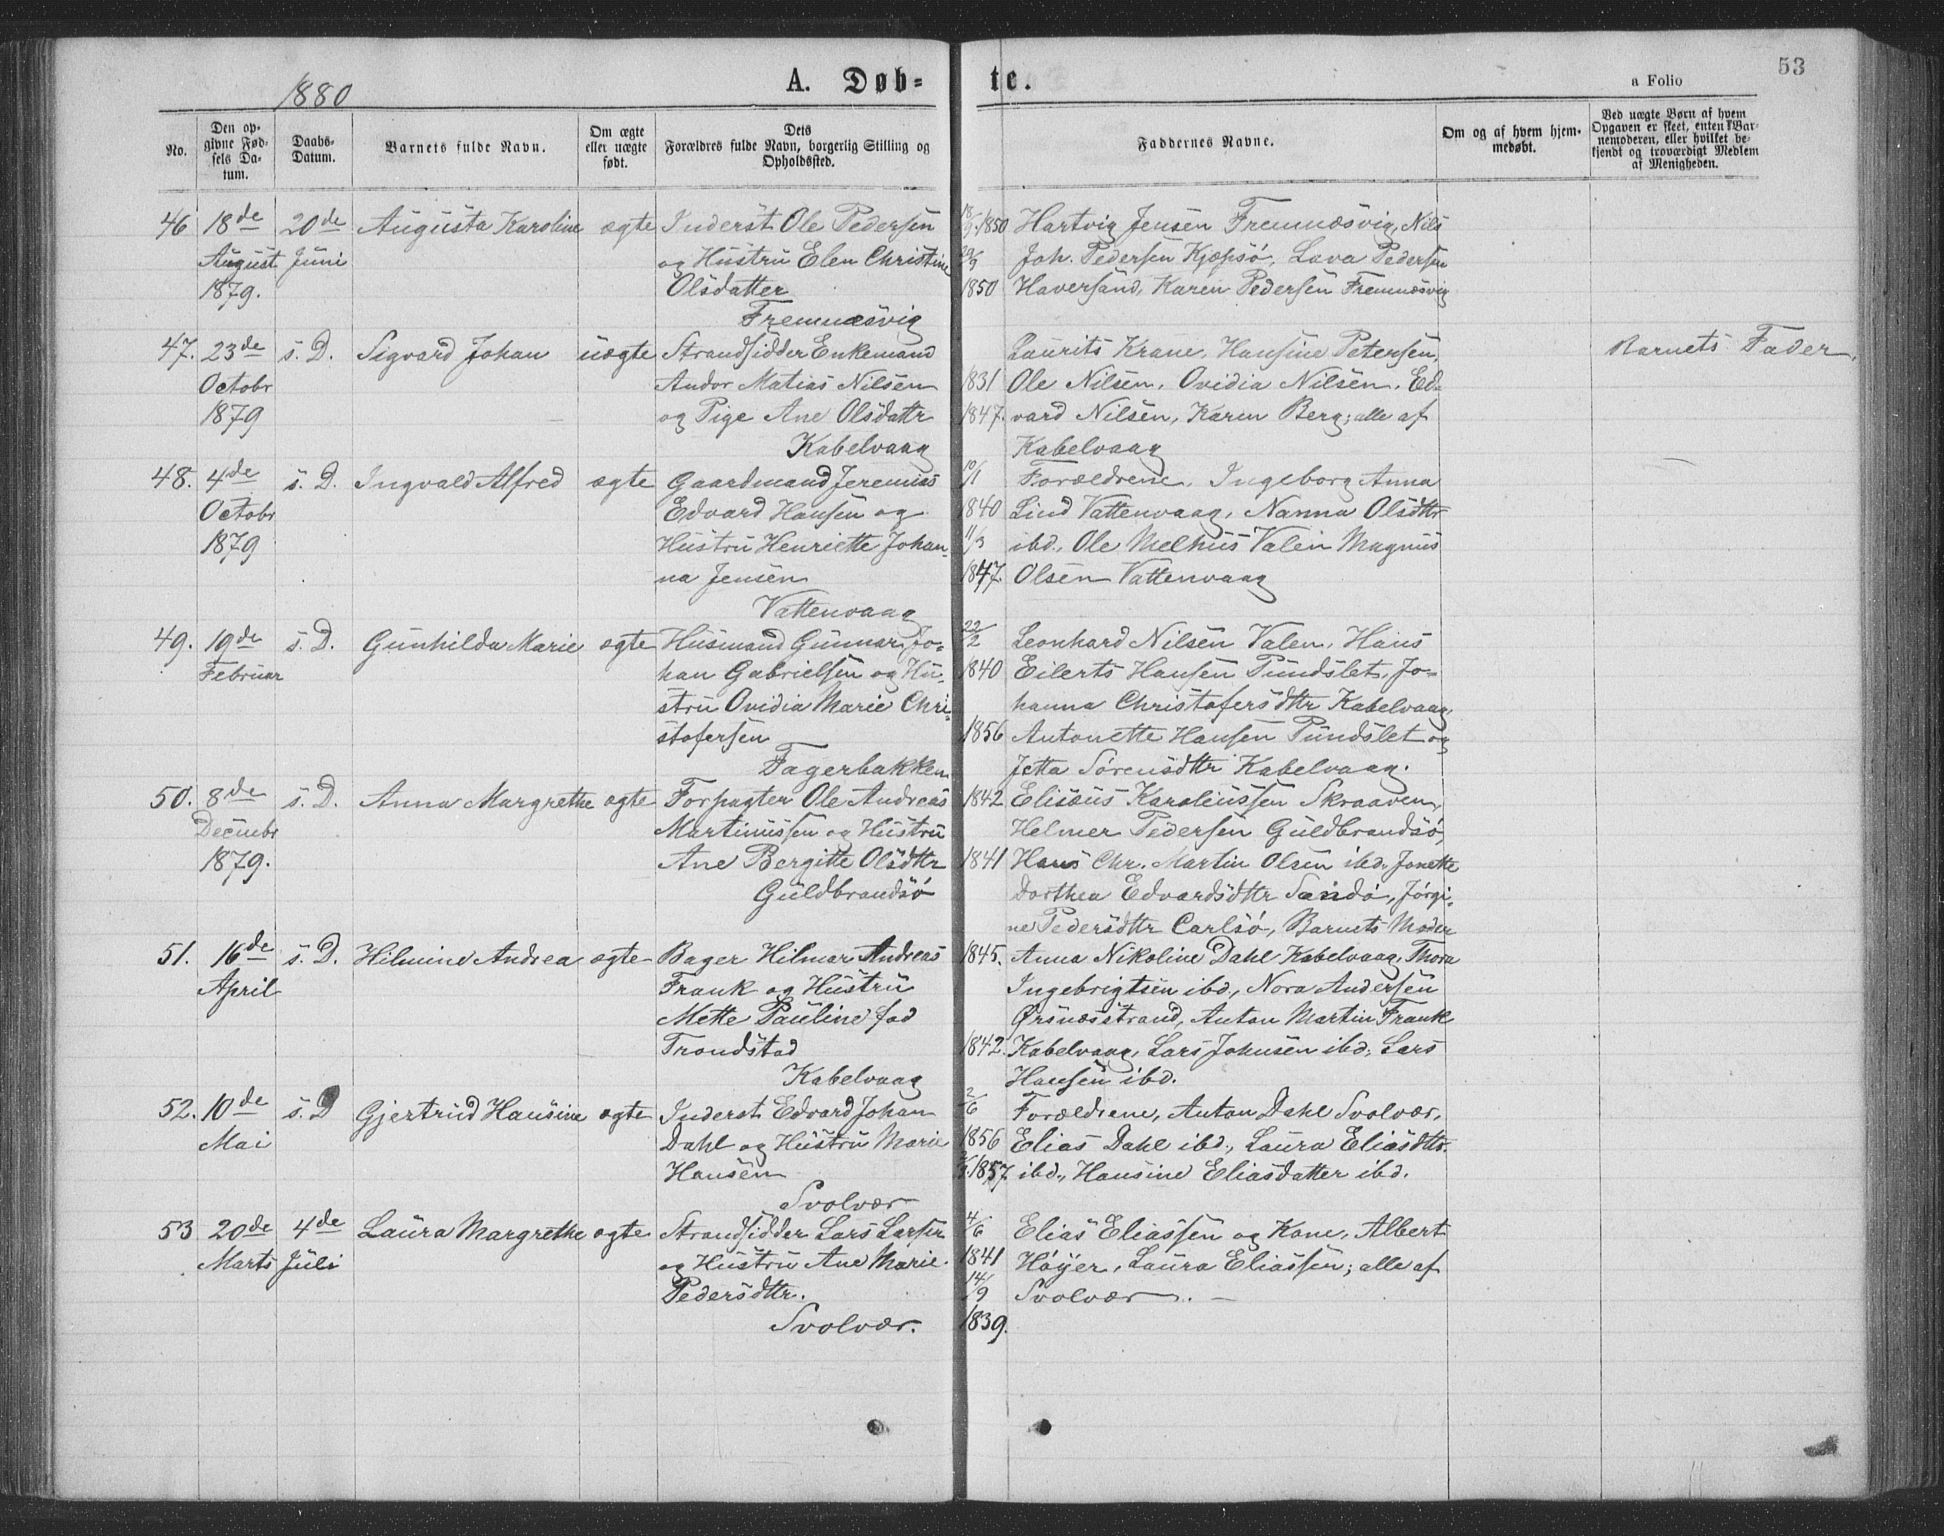 53
1880
A. Døb=
te.
a Folio
No.
Den op-
givne Fød-
sels Da-
tum.
Daabs-
Datum.
Barnets fulde Navn.
Om ægte
eller uægte
født.
Dets
Forældres fulde Navn, borgerlig Stilling og
Opholdssted.
Faddernes Navne.
Om og af hvem hjem-
medøbt.
Ved uægte Børn af hvem
Opgaven er skeet, enten af Bar-
nemoderen, eller hvilket be-
kjendt og troværdigt Medlem
af Menigheden.
46 18de 20de Augusta Karoline ægte Inderst Ole Pedersen 18/9 1850 Hartvig Jensen Fremnæsvig, Nils
August Juni og Hustru Elen Christine Joh. Pedersen Kjøpsø, Lava Pedersen
1879. Olsdatter 1850 Haversand, Karen Pedersen Fremnæsvig
Fremnæsvig
47. 23de s. D. Sigvard Johan uægte Strandsidder Enkemand Laurits Krane, Hansine Petersen, Barnets Fader.
Octobr Andor Matias Nilsen 1831 Ole Nilsen, Ovidia Nilsen, Ed-
1879 og Pige Ane Olsdattr 1847. vard Nilsen, Karen Berg; alle af
Kabelvaag Kabelvaag
48. 4de s. D. Ingvald Alfred ægte Gaardmand Jeremias 10/1 Forældrene, Ingeborg Anna
Octobr Edvard Hansen og 1840 Lind Vattenvaag, Nanna Olsdttr
1879 Hustru Henriette Johan- 11/3 ibd., Ole Melhus Valen Magnus
na Jensen 1847. Olsen Vattenvaag
Vattenvaag
49. 19de s. D. Gunhilda Marie ægte Husmand Gunnar Jo- 22/2 Leonhard Nilsen Valen, Hans
Februar han Gabrielsen og Hu- 1840 Eilerts Hansen Pundslet, Jo-
stru Ovidia Marie Chri- hanna Christofersdttr Kabelvaag,
stofersen 1856 Antonette Hansen Pundslet og
Fagerbakken Jetta Sørensdttr Kabelvaag.
50. 8de s. D. Anna Margrethe ægte Forpagter Ole Andreas 1842 Elisæus Karoliussen Skraaven,
Decmbr Martinussen og Hustru Helmer Pedersen Guldbrandsø,
1879. Ane Bergitte Olsdttr 1841 Hans Chr. Martin Olsen ibd. Jonette
Guldbrandsø Dorthea Edvardsdttr Sandø, Jørgi-
ne Pedersdttr Carlsø, Barnets Moder
51. 16de s. D. Hilmine Andrea ægte Bager Hilmar Andreas 1845. Anna Nikoline Dahl Kabelvaag, Thora
April Frank og Hustru Ingebrigtsen ibd., Nora Andersen
Mette Pauline fød Ørsnæsstrand, Anton Martin Frank
Trondstad 1842. Kabelvaag, Lars Johnsen ibd., Lars
Kabelvaag Hansen ibd.
52. 10de s. D Gjertrud Hansine ægte Inderst Edvard Johan 2/6 Forældrene, Anton Dahl Svolvær,
Mai Dahl og Hustru Marie 1856 Elias Dahl ibd., Laura Eliasdttr.
Hansen 1857. ibd., Hansine Eliasdatter ibd.
Svolvær
53 20de 4de Laura Margrethe ægte Strandsidder Lars Larsen 4/6 Elias Eliassen og Kone, Albert
Marts Juli og Hustru Ane Marie 1841 Høyer, Laura Eliassen; alle af
Pedersdttr. 14/9 Svolvær.
Svolvær. 1839.